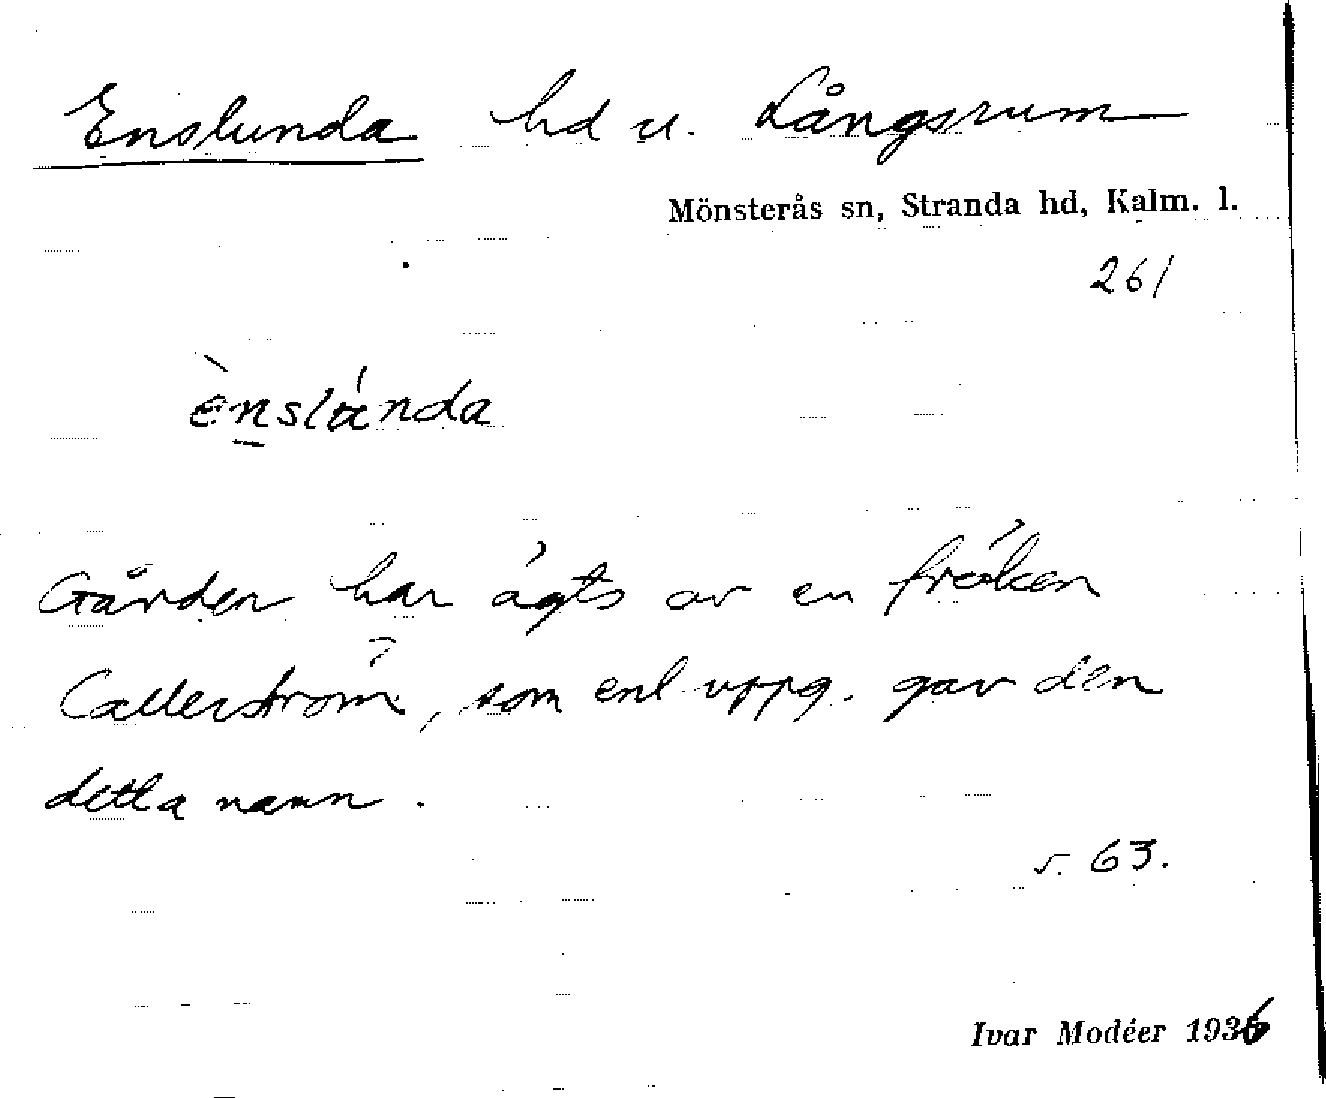 Enslunda hd u. Långsrum
Mönsterås sn, Stranda hd, Kalm. l.
261
Gården har ägts av en fröken
Callerström, som enl uppg. gav den
detta namn.
s. 63.
Ivar Modéer 1936